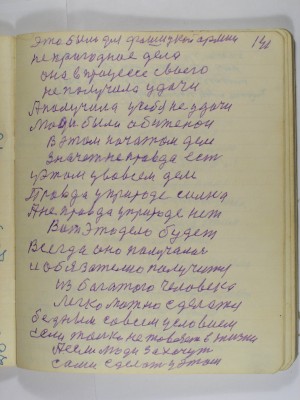 Это было для фашицкой армии 141
не пригодное дело
она в процессе своего
не получила удачи
А получила учобу неудачи
Люди были обиженои
В этом початом деле
Значет неправда ест
у этом у во всем деле
Правда у природе сильна
А неправда у природе нет
Вот это дело будет
Всегда оно получалос
и обязательно получит
из богатого человека
легко можно сделать
бедным совсем условием
если только не товарищ в жизни
А если люди захочут
сами сделают у этом